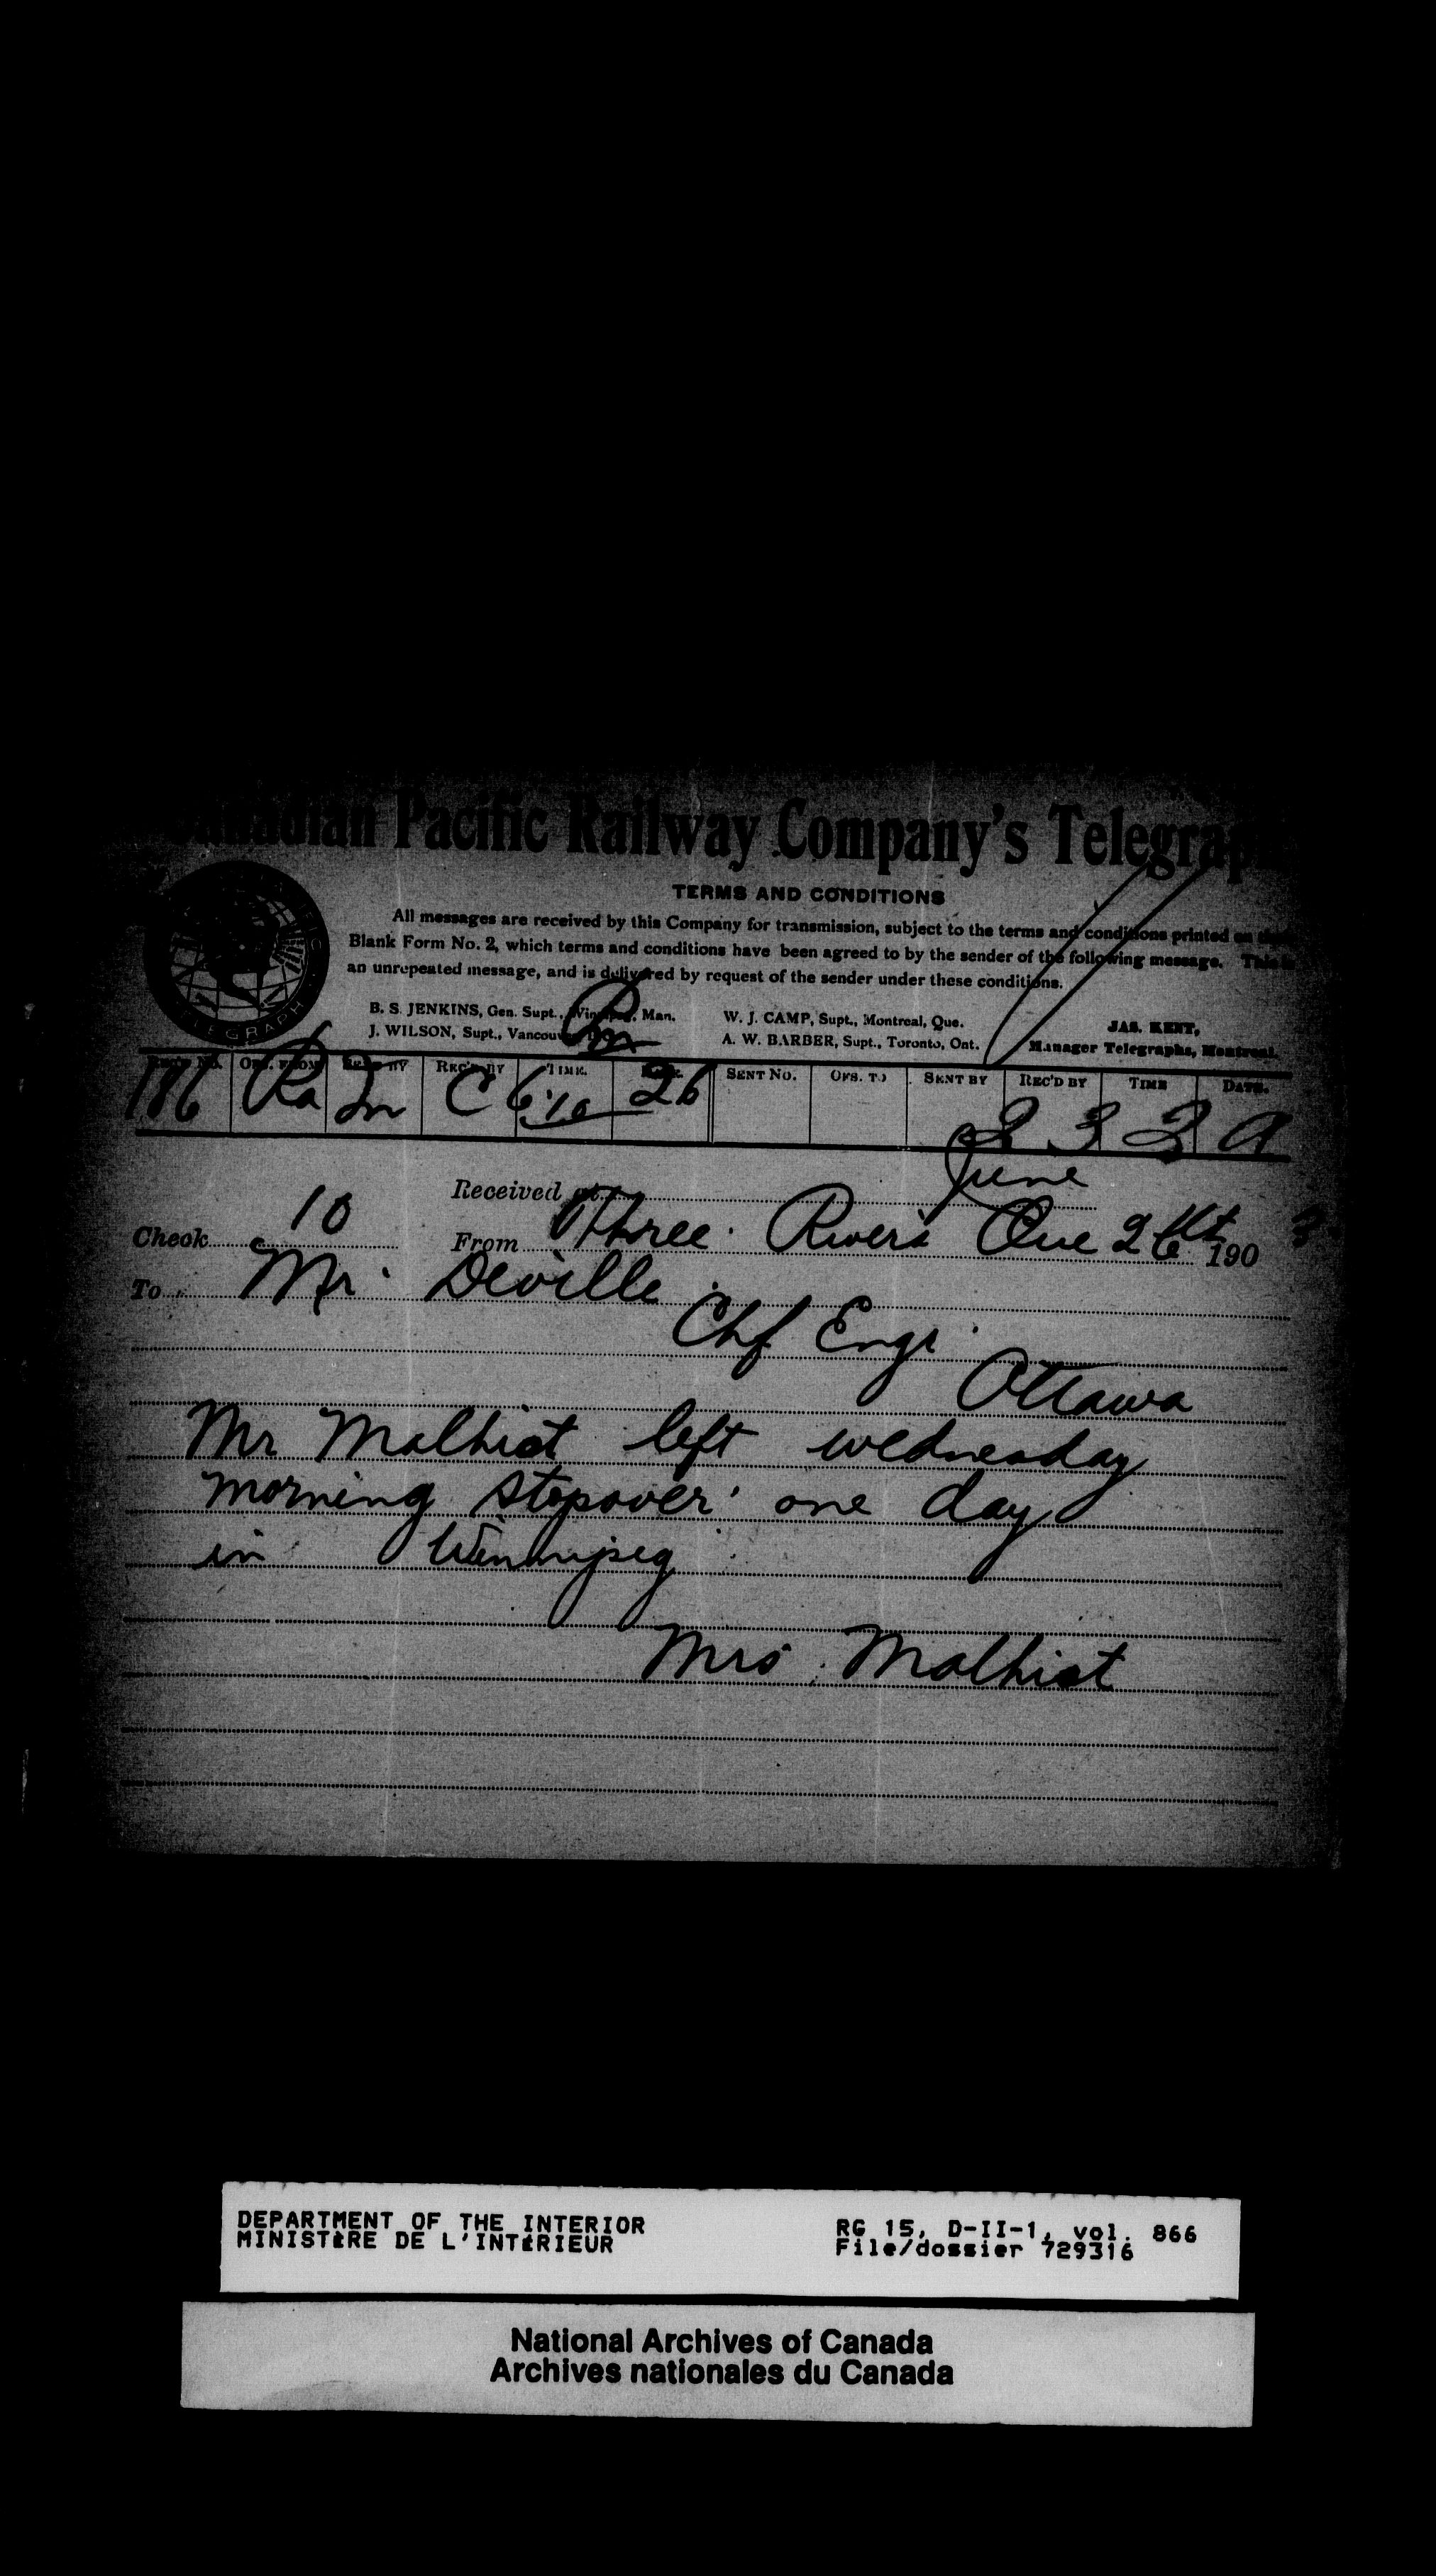 Canadian Pacific Railway Company's Telegraph
TERMS AND CONDITIONS
All messages are received by this Company for transmission, subject to the terms and conditions printed on
Blank Form No. 2, which terms and conditions have been agreed to by the sender of the following message. This is
an unrepeated message, and is delivered by request of the sender under these conditions.
B. S. JENKINS, Gen. Supt., Winnipeg, Man.
J. WILSON, Supt., Vancouver
W. J. CAMP, Supt., Montreal, Que.
A. W. BARBER, Supt., Toronto, Ont.
JAS. KENT,
Manager Telegraphs, Montreal.
TELEGRAPH
REC'D BY TIME. SENT NO. OFS. TO SENT BY REC'D BY TIME DATE.
186 Ra C 6.10 26
2 3 3 2 a
June
Received at
Check 10 From Three Rivers Que 26 190 3
To Mr. Deville
Chf Engr
Ottawa
Mr Malhiot left wednesday
morning stopover one day
in Winnipeg
Mrs. Malhiot
DEPARTMENT OF THE INTERIOR
MINISTÈRE DE L'INTÉRIEUR
RG 15, D-II-1, vol. 866
File/dossier 729316
National Archives of Canada
Archives nationales du Canada